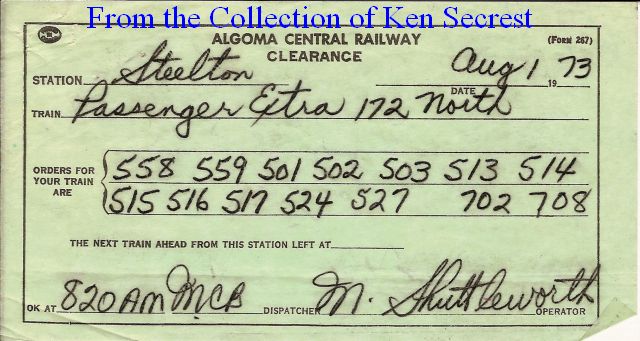 From the Collection of Ken Secrest
ALGOMA CENTRAL RAILWAY (FORM 267)
CLEARANCE
STATION Steelton DATE Aug 1 1973
TRAIN Passenger Extra 172 North
ORDERS FOR YOUR TRAIN ARE
558 559 501 502 503 513 514
515 516 517 524 527 702 708
THE NEXT TRAIN AHEAD FROM THIS STATION LEFT AT
OK AT 820 AM MCB DISPATCHER M. Shuttleworth OPERATOR